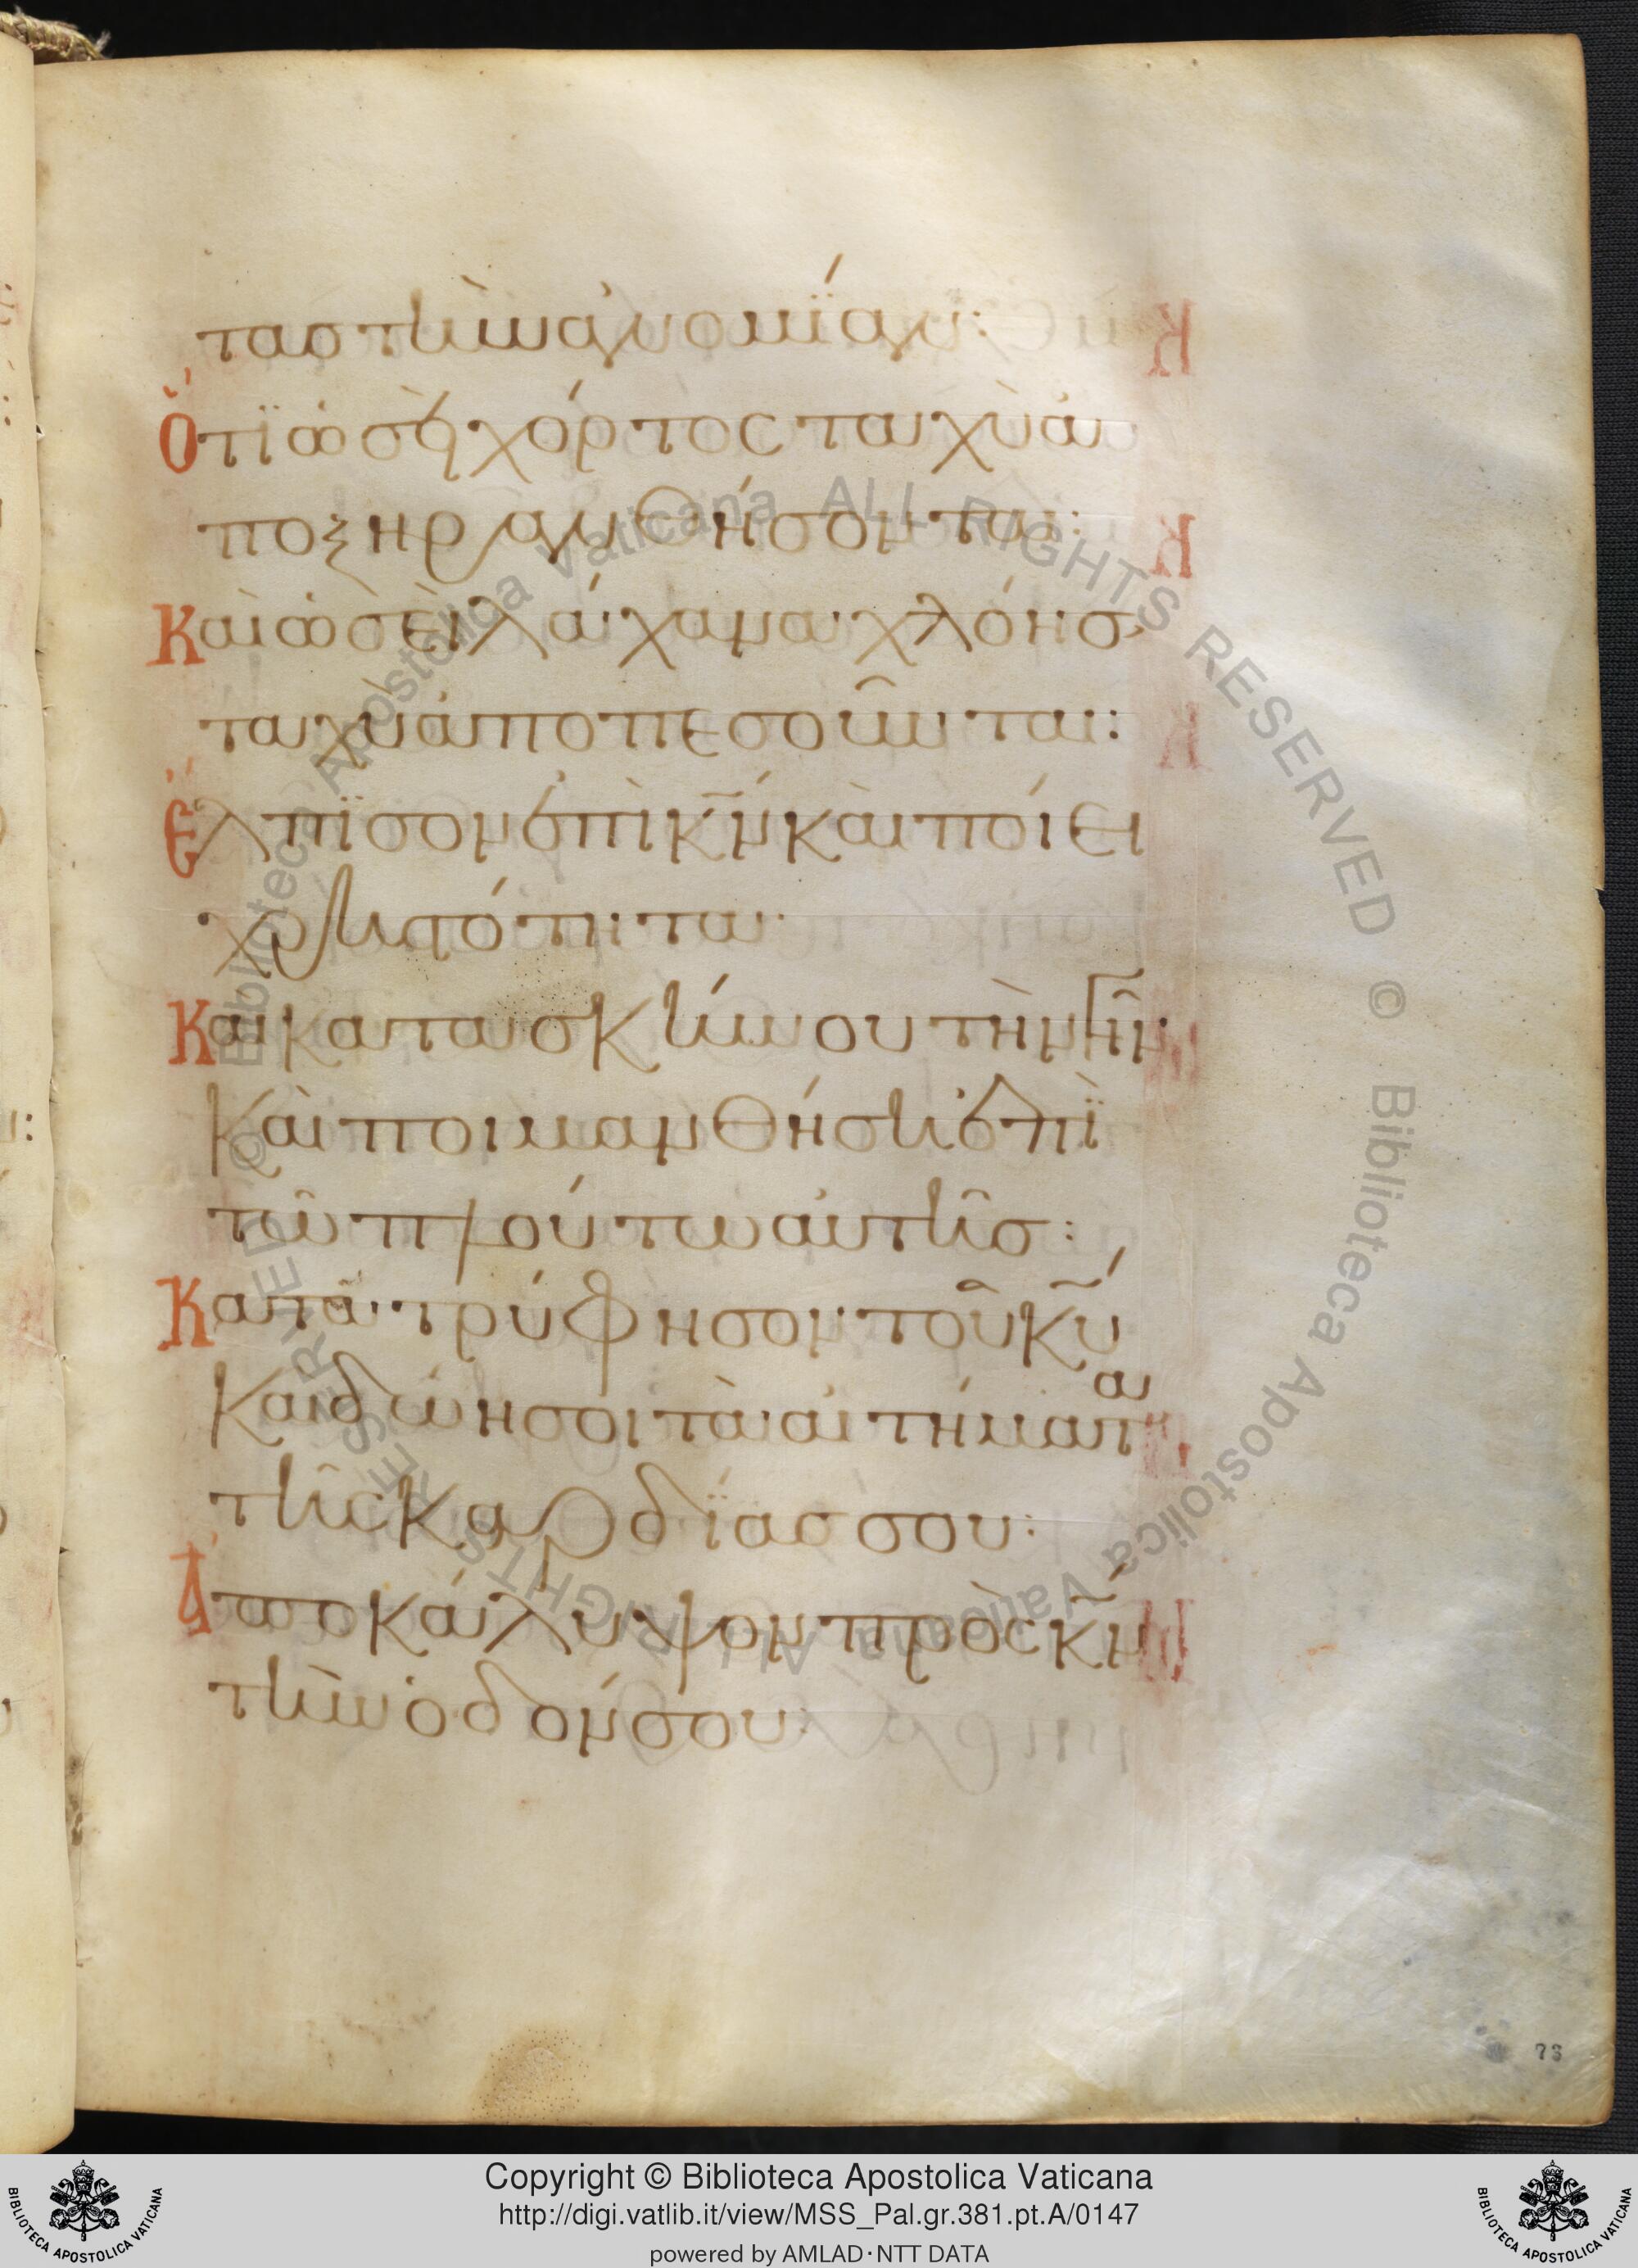 τας τὴν ἀνομΐαν:
Ὅτϊ ὡσεὶ χόρτος ταχὺ ἀ
ποξηρανθήσονται:
Καὶ ὡσεὶ λάχανα χλόης
ταχὺ ἀποπεσοῦνται:
Ἔλπϊσον ἐπὶ κ̅ν̅ καὶ ποίει
χρηστότητα·
Και κατασκήνου τὴν γῆν·
Καὶ ποιμανθήση ἐπῒ
τῶ πλούτω αὐτῆς:
Κατατρύφησον τοῦ κ̅υ̅
Και δώη σοι τὰ αἰτήματα
τῆς καρδΐας σου:
Ἀποκάλυψον πρὸς κ̅ν̅
τὴν ὁδόν σου:
73
Biblioteca Apostolica Vaticana ALL RIGHTS RESERVED © Biblioteca Apostolica Vaticana ALL RIGHTS RESERVED ©
Copyright © Biblioteca Apostolica Vaticana
http://digi.vatlib.it/view/MSS_Pal.gr.381.pt.A/0147
powered by AMLAD·NTT DATA
BIBLIOTECA APOSTOLICA VATICANA
BIBLIOTECA APOSTOLICA VATICANA